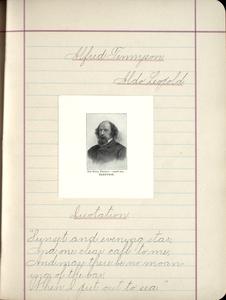 Alfred Tennyson
Aldo Leopold
TENNYSON
Quotation
"Sunset and evening star,
And one clear call to me,
And may there be no moan-
ing of the bar,
When I put out to sea."